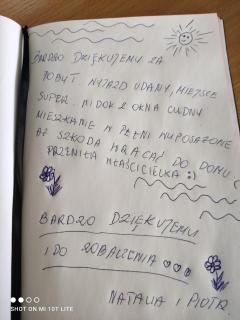 BARDZO DZIĘKUJEMY ZA
POBYT WYJAZD UDANY, MIEJSCE
SUPER. WIDOK Z OKNA CUDNY
MIESZKANIE W PEŁNI WYPOSAŻONE
AŻ SZKODA WRACAĆ DO DOMU.
PRZEMIŁA WŁAŚCICIELKA :)
BARDZO DZIĘKUJEMY
I DO ZOBACZENIA ♡♡♡
NATALIA I PIOTR.
SHOT ON MI 10T LITE